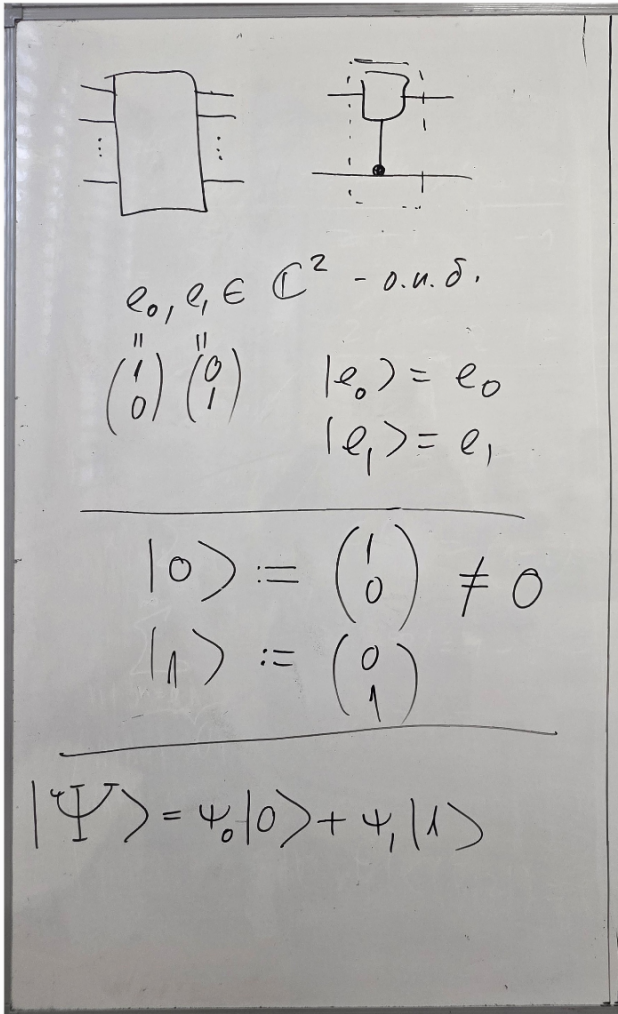 e₀, e₁ ∈ ℂ² - о.н.б.
= =
(1 0) (0 1)
|e₀⟩ = e₀
|e₁⟩ = e₁
|0⟩ := (1 0) ≠ 0
|1⟩ := (0 1)
|Ψ⟩ = ψ₀|0⟩ + ψ₁|1⟩